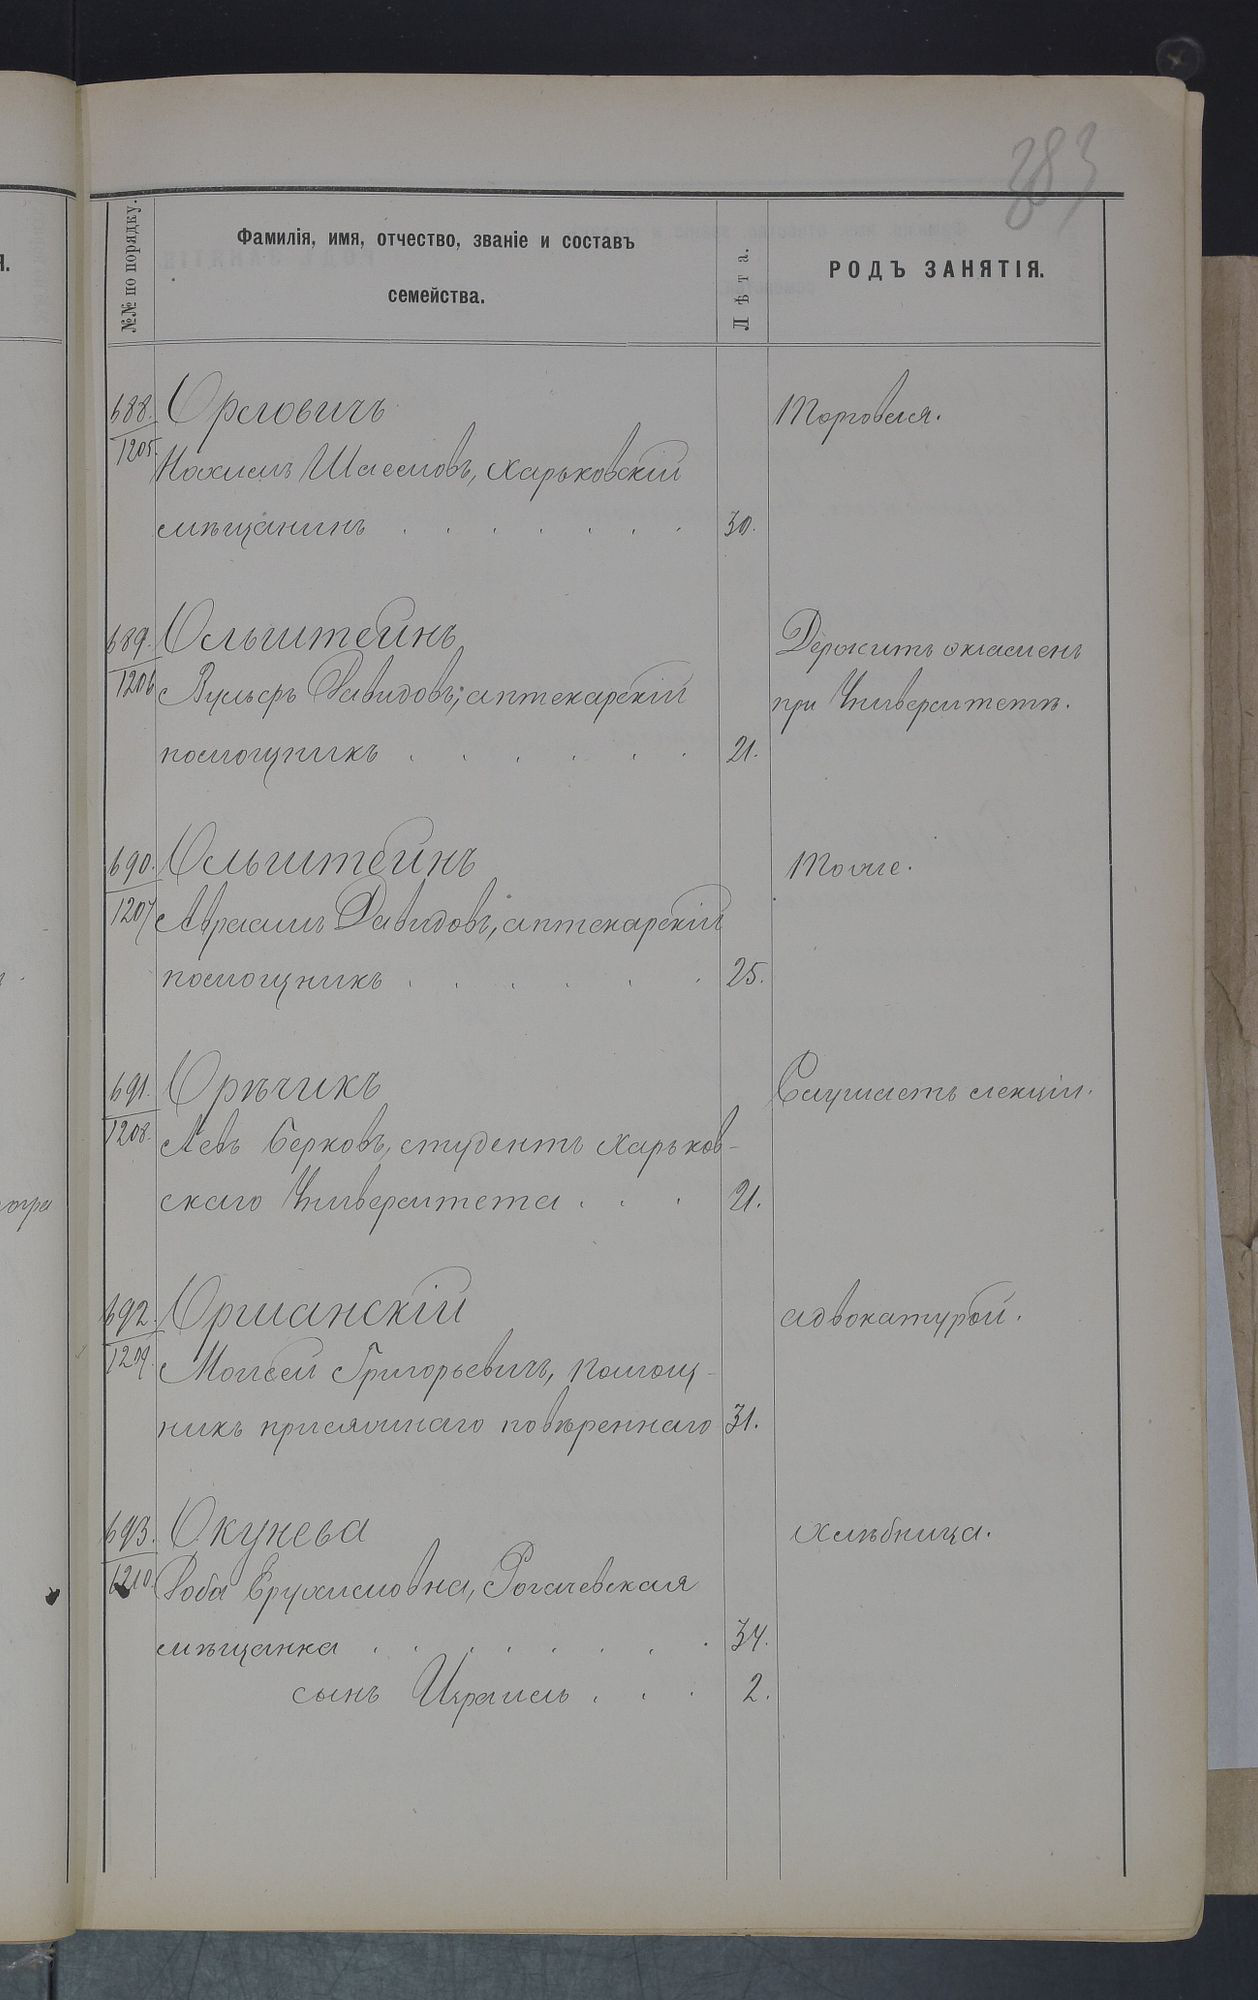 383
№№ по порядку.
Фамилія, имя, отчество, званіе и составъ
семейства.
Лѣта.
РОДЪ ЗАНЯТІЯ.
688. Орловичъ Торговля.
1205. Нахимъ Шаеемовъ, Харьковскій
мѣщанинъ . . . . . . . 30.
689. Ольштейнъ Держитъ экзаменъ
1206 Вульфъ Давидовъ, аптекарскій при Университетѣ.
помощникъ . . . . . . 21.
690. Ольштейнъ Тоже.
1207 Авраамъ Давидовъ, аптекарскій
помощникъ . . . . . . 25.
691. Орѣчикъ Слушаетъ лекціи.
1208. Левъ Берковъ, студентъ Харьков-
скаго Университета . . . 21.
692. Оршанскій адвокатурой.
1209. Моисей Григорьевичъ, помощ-
никъ присяжнаго повѣреннаго 31.
693. Окунева хлѣбница.
1210. Роба Ерухимовна, Рогачевская
мѣщанка . . . . . . . . 34.
сынъ Израиль . . . 2.